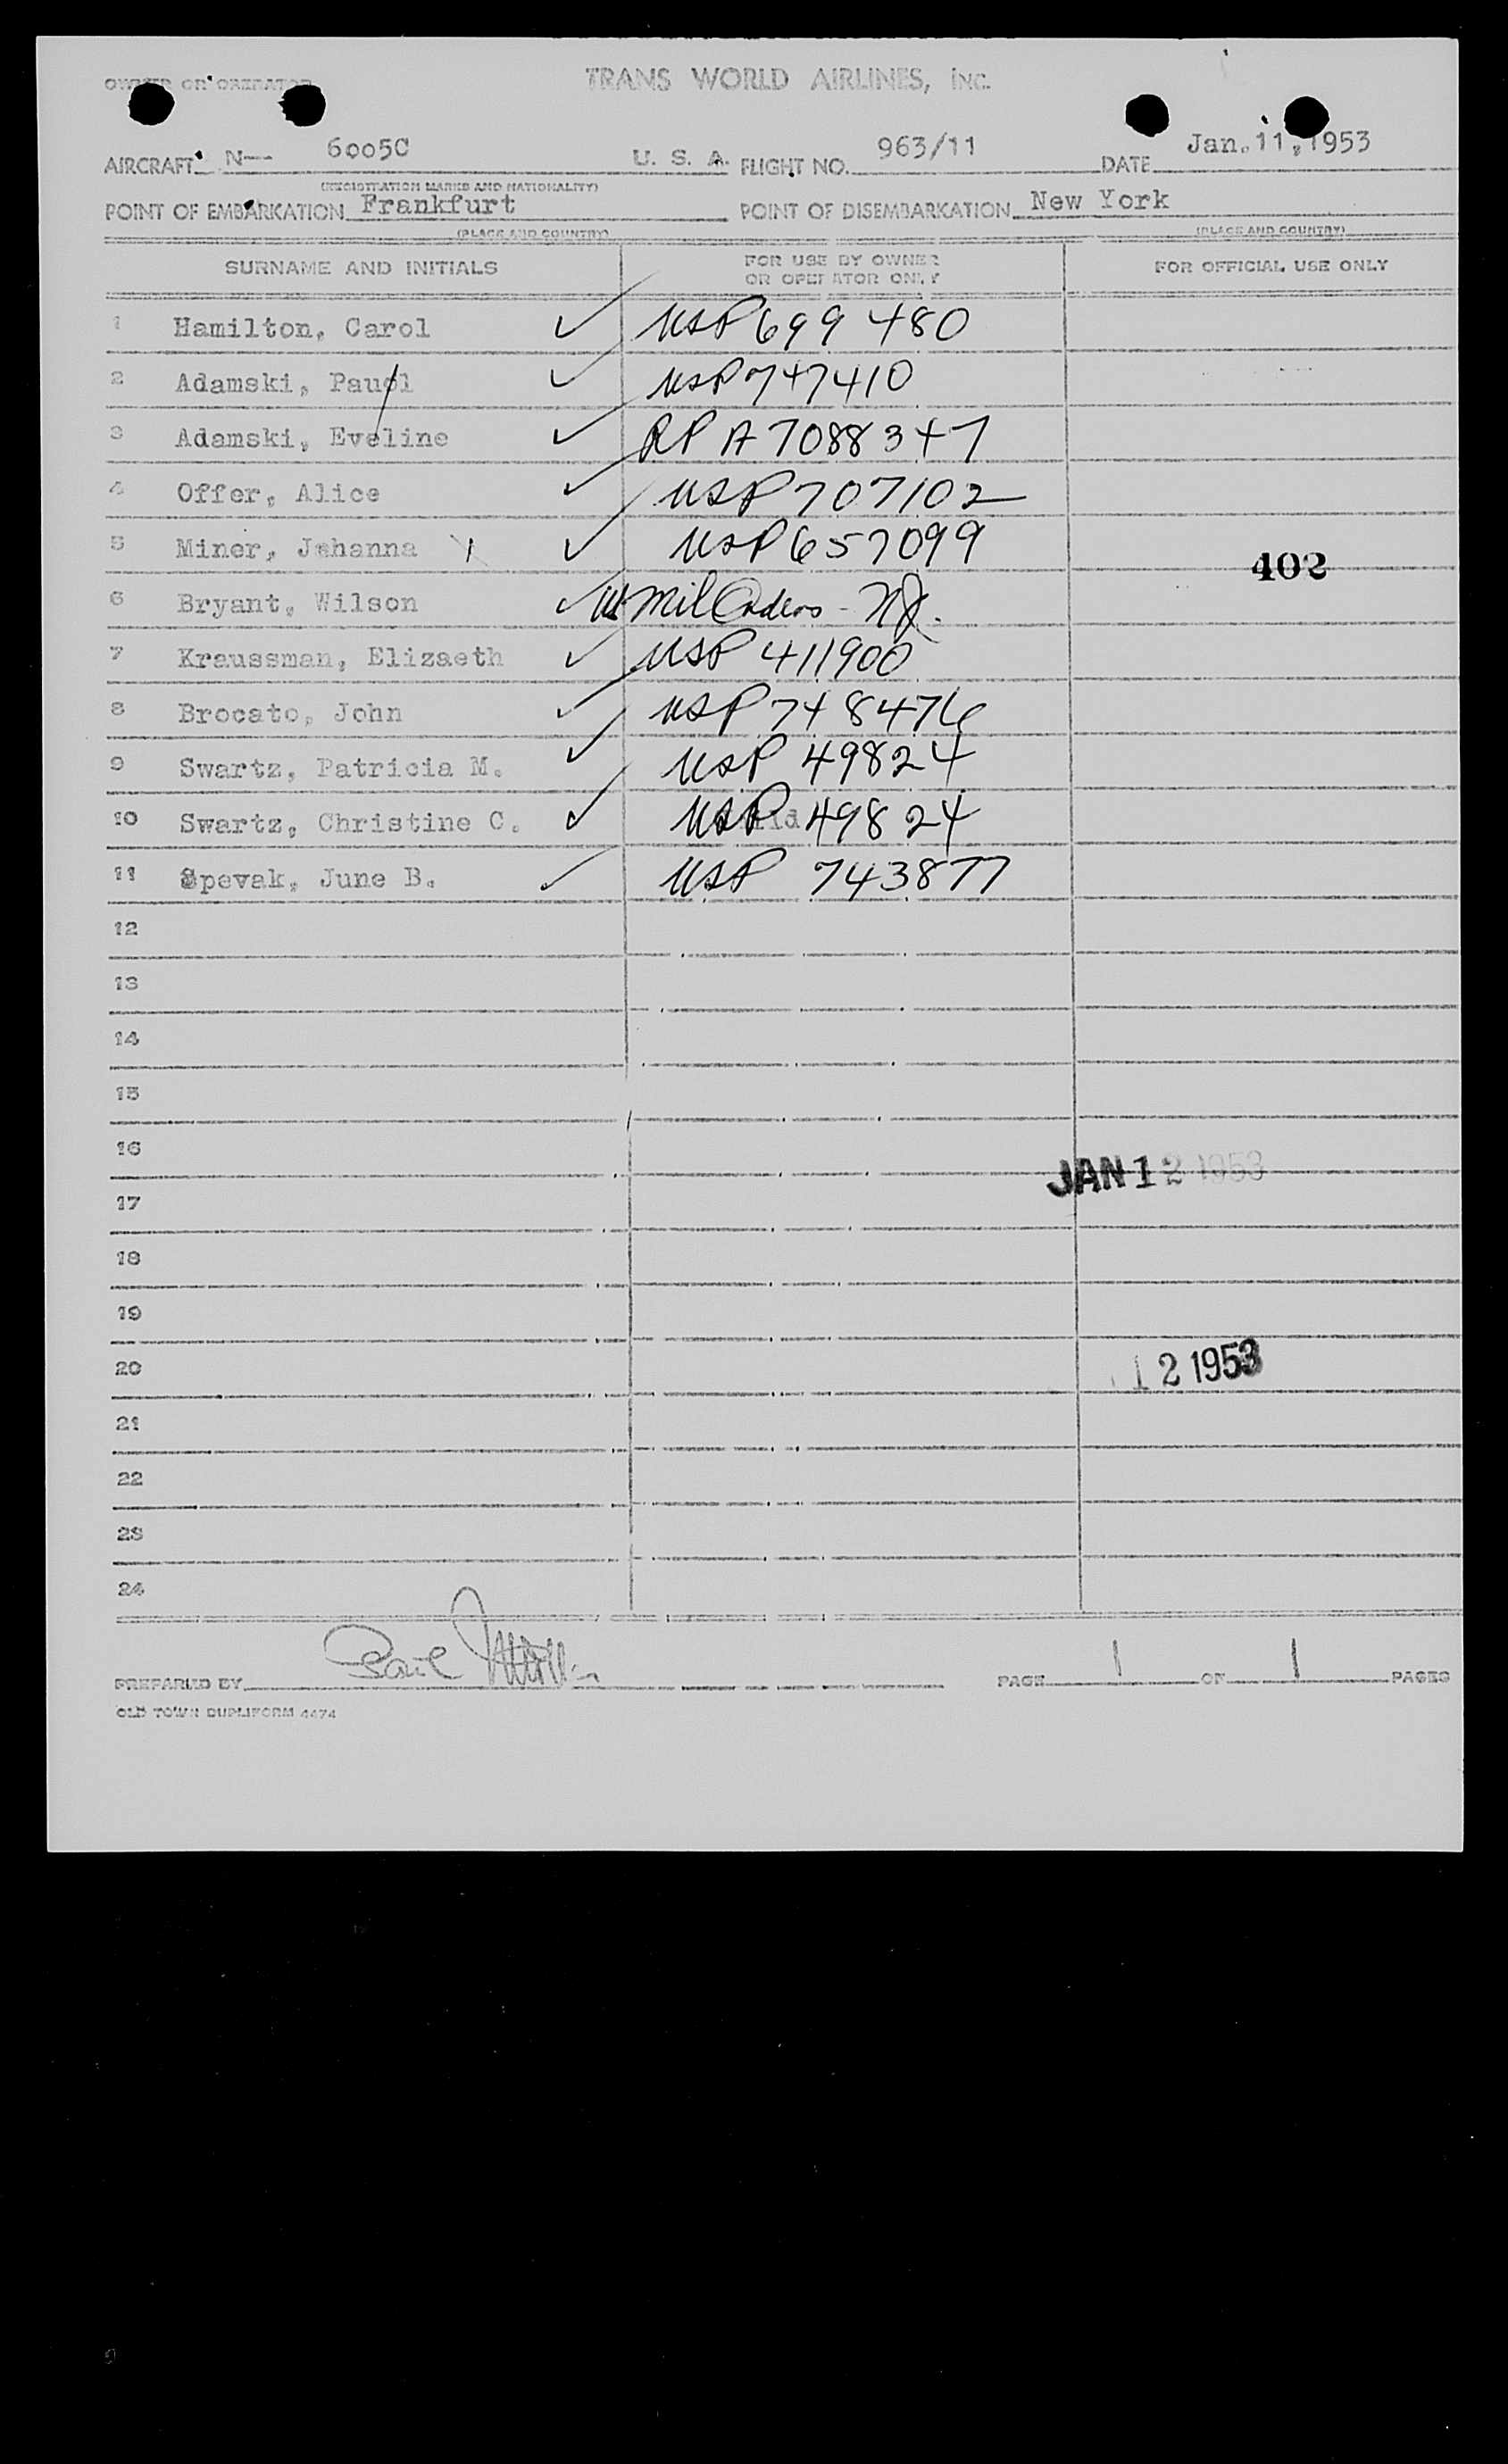 OWNER OR OPERATOR TRANS WORLD AIRLINES, INC.
AIRCRAFT N-- 6005C U. S. A. FLIGHT NO. 963/11 DATE Jan. 11, 1953
(REGISTRATION MARKS AND NATIONALITY)
POINT OF EMBARKATION Frankfurt POINT OF DISEMBARKATION New York
(PLACE AND COUNTRY) (PLACE AND COUNTRY)
SURNAME AND INITIALS FOR USE BY OWNER OR OPERATOR ONLY FOR OFFICIAL USE ONLY
1 Hamilton, Carol ✓ USP 699480
2 Adamski, Pauol ✓ USP 747410
3 Adamski, Eveline ✓ RP A7088347
4 Offer, Alice ✓ USP 707102
5 Miner, Johanna ✓ USP 657099
402
6 Bryant, Wilson ✓ Mil Orders - NJ.
7 Kraussman, Elizaeth ✓ USP 411900
8 Brocato, John ✓ USP 748476
9 Swartz, Patricia M. ✓ USP 49824
10 Swartz, Christine C. ✓ USP 49824
11 Spevak, June B. ✓ USP 743877
12
13
14
15
16
JAN 12 1953
17
18
19
20
12 1953
21
22
23
24
PREPARED BY Paul PAGE 1 OF 1 PAGES
OLD TOWN DUPLIFORM 4474